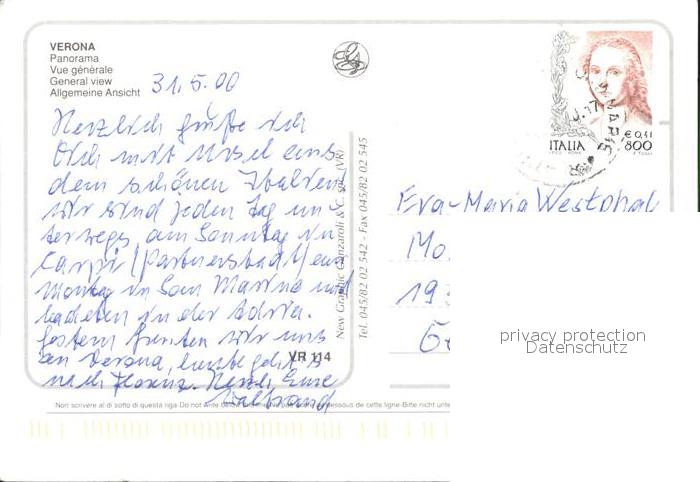 VERONA
Panorama
Vue générale
General view
Allgemeine Ansicht
31.5.00
Herzlich grüße ich
Dich mit Ursel aus
dem schönen Italien
wir sind jeden Tag un-
terwegs, am Sonntag in
Carpi (Partnerstadt) am
Montag in San Marino und
badeten in der Adria.
Gestern freuten wir uns
an Verona, heute geht's
nach Florenz. Herzl. Eure
New Graphic Ganzaroli & C. (VR)
Tel. 045/82 02 542 - Fax 045/82 02 545
VR 114
ITALIA
€ 0,41
800
Eva-Maria Westphal
Mo.
193
Ge
privacy protection
Datenschutz
Non scrivere al di sotto di questa riga Do not write dessous de cette ligne-Bitte nicht unter